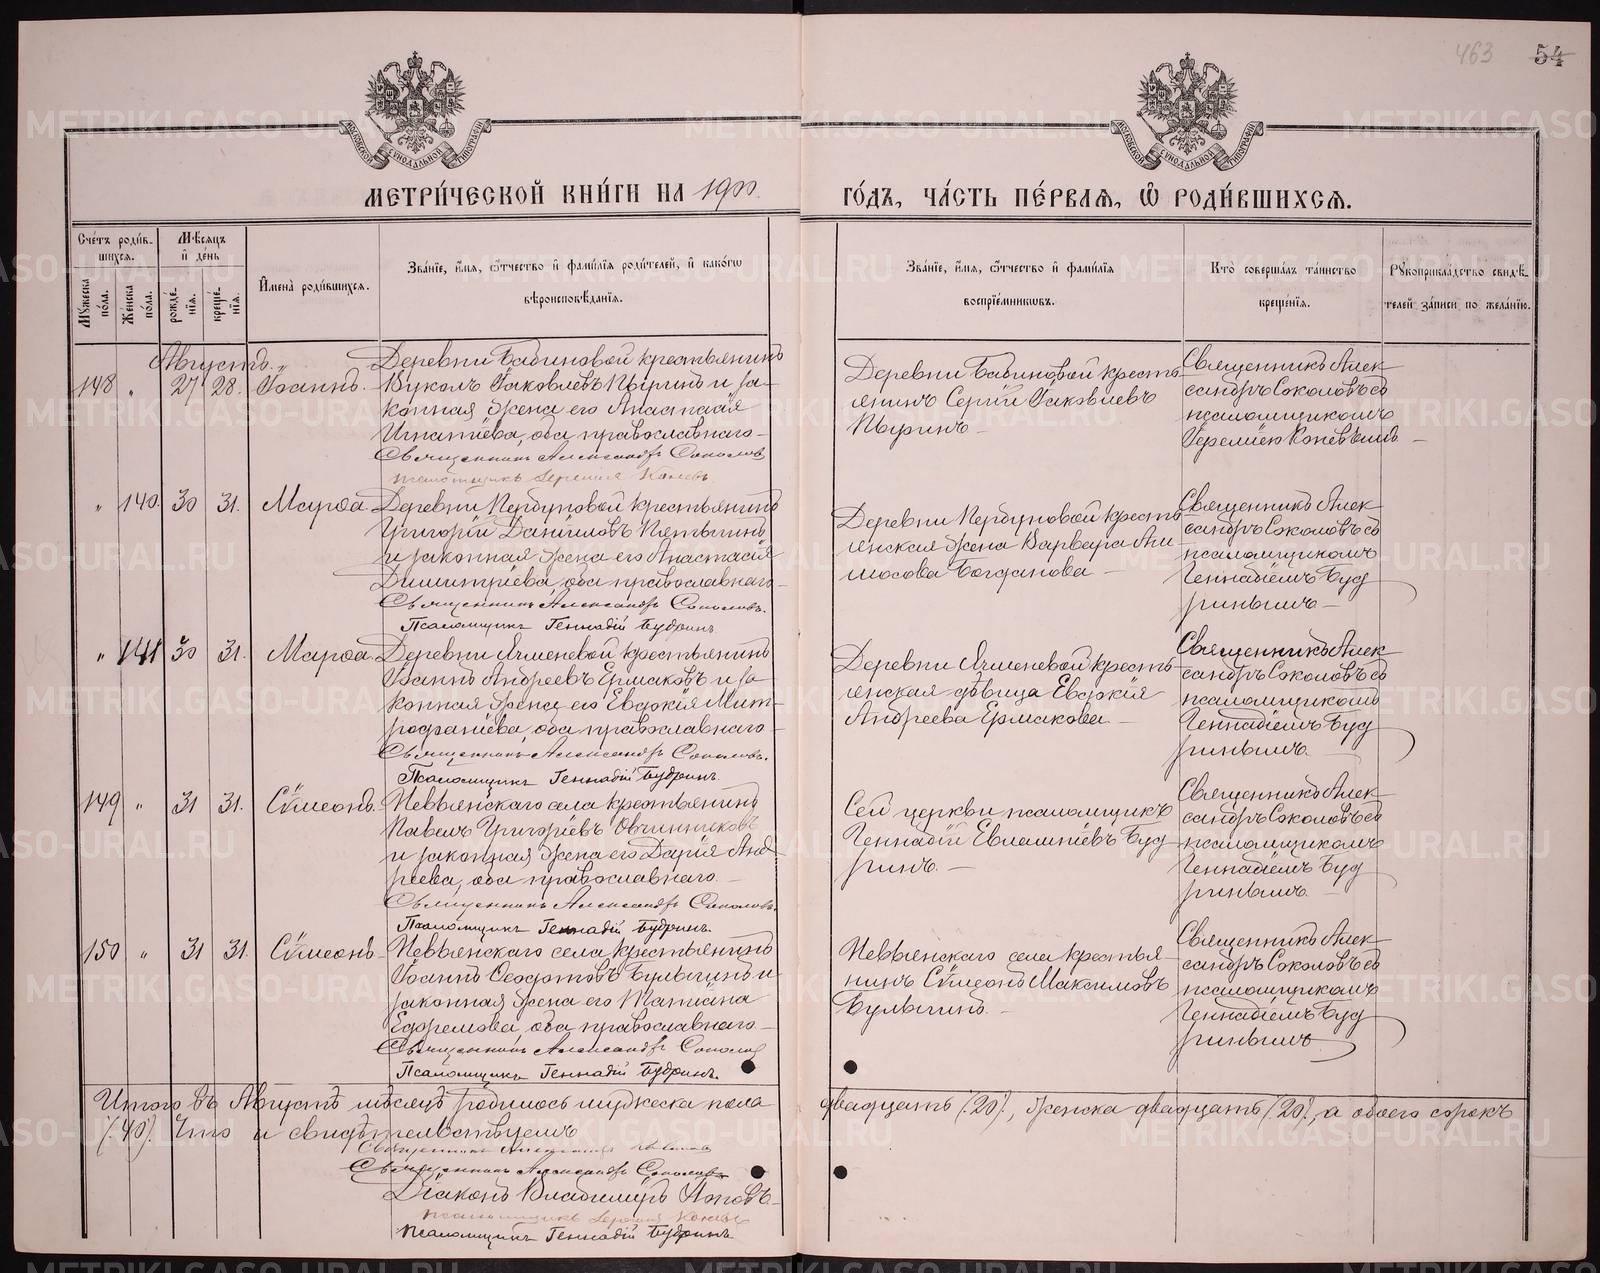 463 54
МОСКОВСКОЙ СУНОДАЛЬНОЙ ТИПОГРАФІИ
МОСКОВСКОЙ СУНОДАЛЬНОЙ ТИПОГРАФІИ
МЕТРИ́ЧЕСКОЙ КНИ́ГИ НА 1900 ГО́ДЪ, ЧА́СТЬ ПЕ́РВАѦ, Ѡ҆ РОДИ́ВШИХСѦ.
Сче́тъ роди́в-
шихся.
Мѣ́сяцъ
и҆ де́нь
Мꙋжеска по́ла.
Же́нска по́ла.
рожде́-
нїя.
креще́-
нїя.
И҆мена̀ роди́вшихся.
Зва́нїе, и҆́мя, ѻ҆́тчество и҆ фами́лїя роди́телей, и҆ како́гѡ
вѣроисповѣ́данїя.
Зва́нїе, и҆́мя, ѻ҆́тчество и҆ фами́лїя
воспрїе́мникѡвъ.
Кто̀ соверша́лъ та́инство
креще́нїя.
Рꙋкоприкла́дство свидѣ́-
телей за́писи по жела́нїю.
Августъ.
148 „ 27 28. Іоаннъ.
Деревни Бабиновой крестьянинъ
Вуколъ Іаковлевъ Пыринъ и за-
конная жена его Анастасія
Игнатіева, оба православнаго –
Священникъ Александръ Соколовъ
Псаломщикъ Іеремія Коневъ.
Деревни Бабиновой кресть-
янинъ Сергій Іаковлевъ
Пыринъ –
Священникъ Алек-
сандръ Соколовъ съ
псаломщикомъ
Іереміею Коневымъ –
„ 140. 30 31. Марѳа.
Деревни Пербуновой крестьянинъ
Григорій Даніиловъ Пятыгинъ
и законная жена его Анастасія
Димитріева, оба православнаго –
Священникъ Александръ Соколовъ.
Псаломщикъ Геннадій Будринъ.
Деревни Пербуновой кресть-
янская жена Варвара Ам-
мосова Богданова –
Священникъ Алек-
сандръ Соколовъ съ
псаломщикомъ
Геннадіемъ Буд-
ринымъ –
„ 141 30 31. Марѳа.
Деревни Ячменевой крестьянинъ
Іоаннъ Андреевъ Ермаковъ и за-
конная жена его Евдокія Мит-
рофаніева, оба православнаго –
Священникъ Александръ Соколовъ.
Псаломщикъ Геннадій Будринъ.
Деревни Ячменевой кресть-
янская дѣвица Евдокія
Андреева Ермакова –
Священникъ Алек-
сандръ Соколовъ съ
псаломщикомъ
Геннадіемъ Буд-
ринымъ. –
149 „ 31 31. Сѵмеонъ.
Невьянскаго села крестьянинъ
Павелъ Григоріевъ Овчинниковъ
и законная жена его Дарія Анд-
реева, оба православнаго. –
Священникъ Александръ Соколовъ.
Псаломщикъ Геннадій Будринъ.
Сей церкви псаломщикъ
Геннадій Евлампіевъ Буд-
ринъ. –
Священникъ Алек-
сандръ Соколовъ съ
псаломщикомъ
Геннадіемъ Буд-
ринымъ. –
150 „ 31 31. Сѵмеонъ
Невьянскаго села крестьянинъ
Іоаннъ Ѳеодотовъ Булыгинъ и
законная жена его Татіана
Ефремова, оба православнаго –
Священникъ Александръ Соколов
Псаломщикъ Геннадій Будринъ.
Невьянскаго села крестья-
нинъ Сѵмеонъ Максимовъ
Булыгинъ. –
Священникъ Алек-
сандръ Соколовъ съ
псаломщикомъ
Геннадіемъ Буд-
ринымъ
Итого въ Августѣ мѣсяцѣ родилось мужеска пола двадцать /.20/., женска двадцать /.20/., а обоего сорокъ
/.40/. Что и свидѣтельствуемъ
Священникъ Александръ Соколовъ
Діаконъ Владиміръ Поповъ
Псаломщикъ Іеремія Коневъ
Псаломщикъ Геннадій Будринъ
METRIKI.GASO-URAL.RU